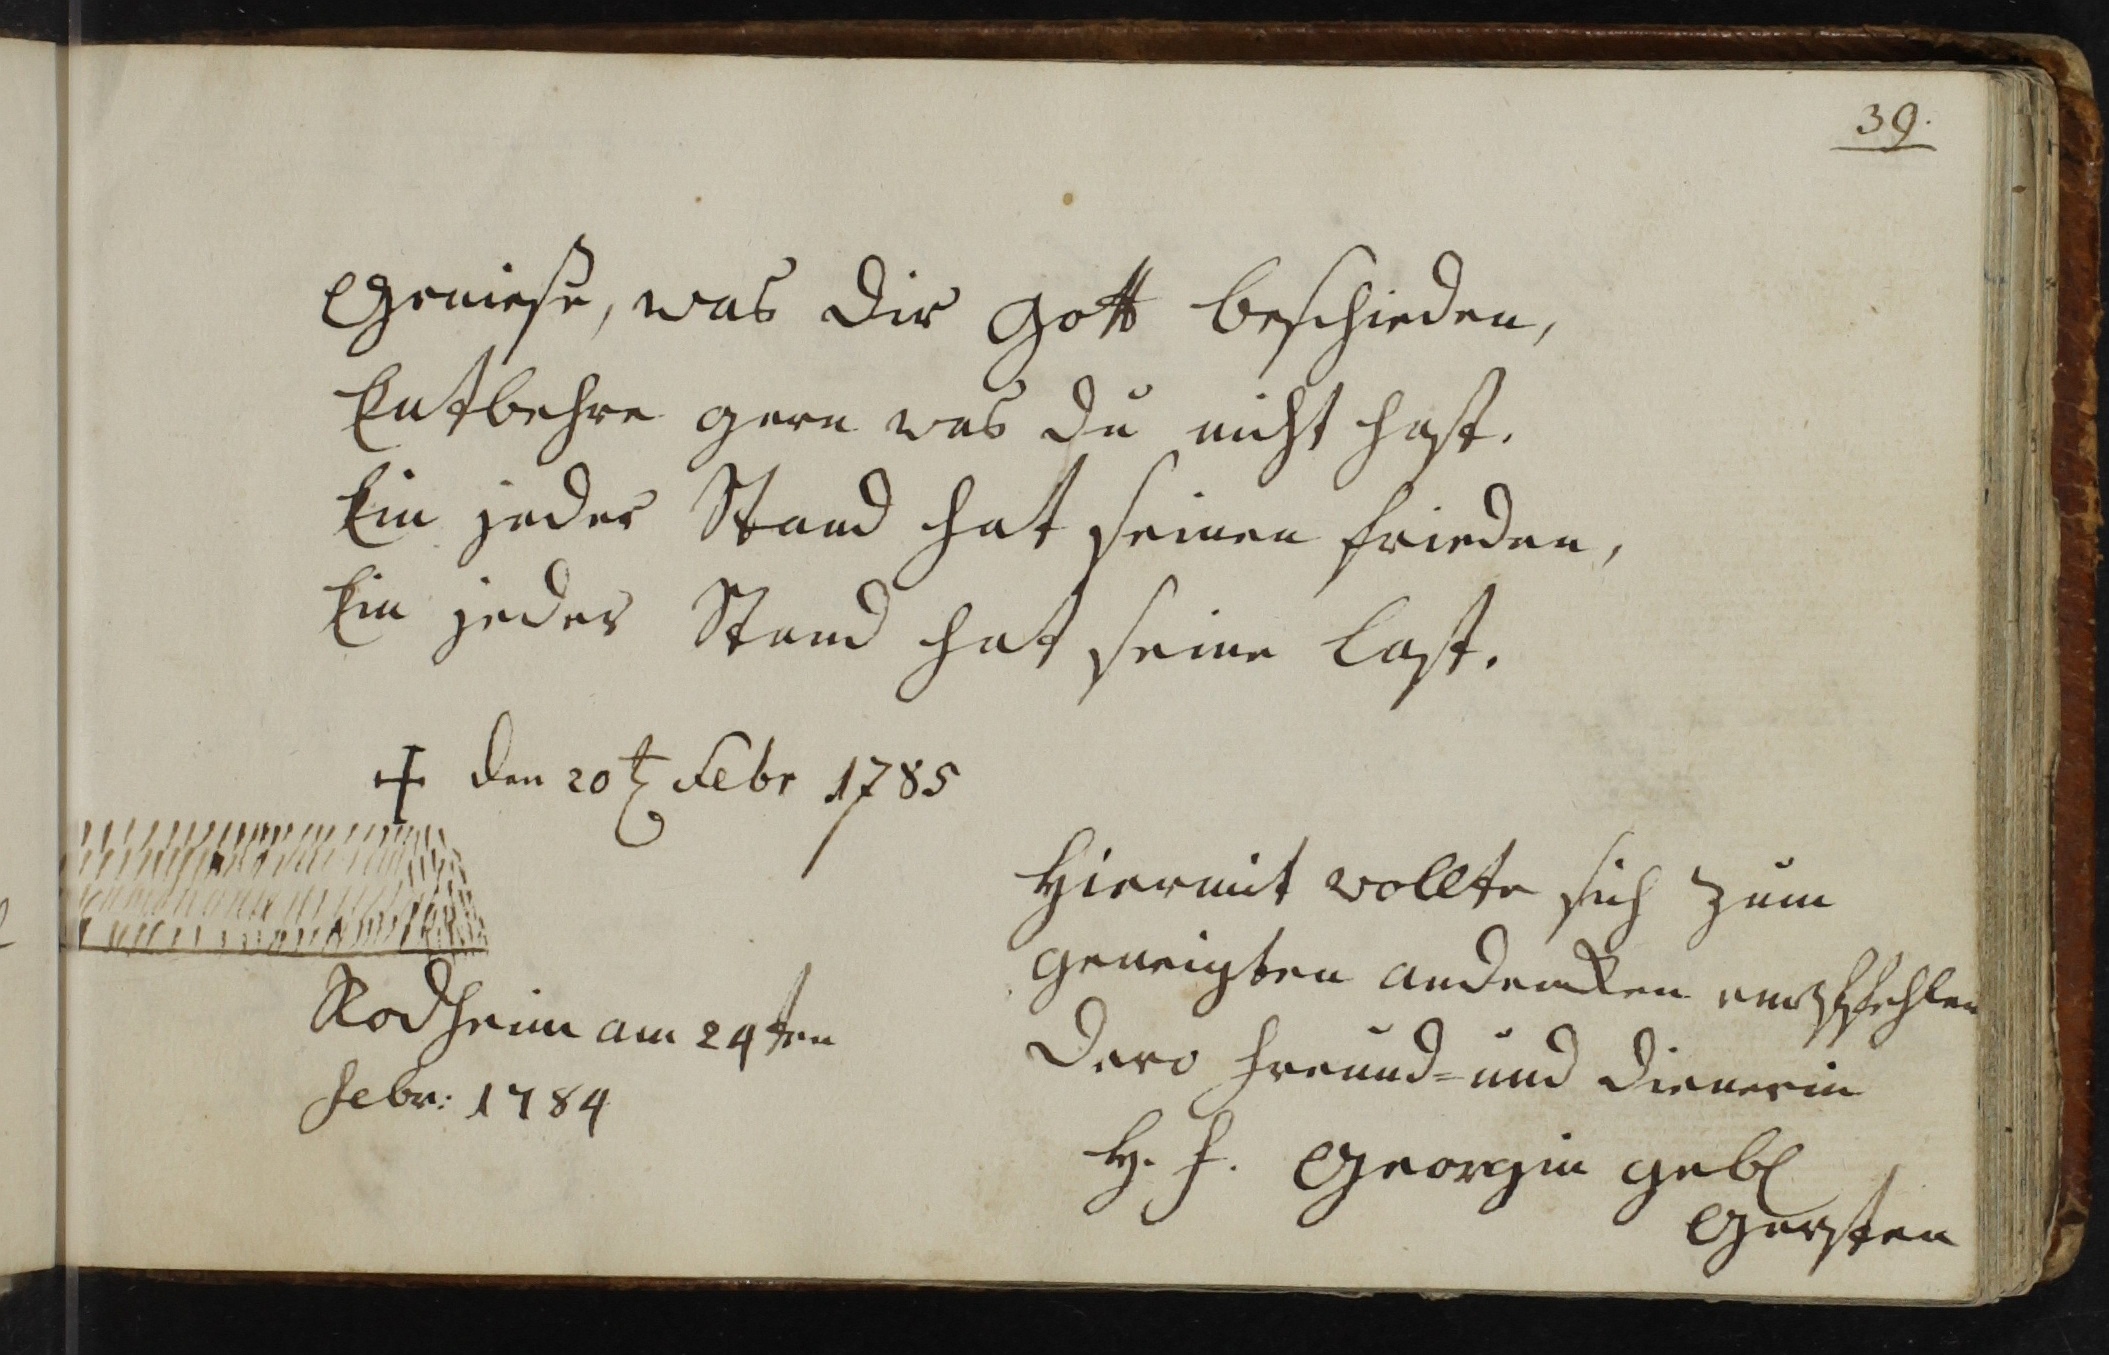 39.
Geniese, was dir Gott beschieden,
Entbehre gern was du nicht hast.
Ein jeder Stand hat seinen frieden,
Ein jeder Stand hat seine Last.
+ den 20t Febr 1785
Hiermit wollte sich zum
geneigten andencken empfehlen
Dero freund= und dienerin
H. F. Georgin geb
Gersten
Rodheim am 24ten
febr: 1784